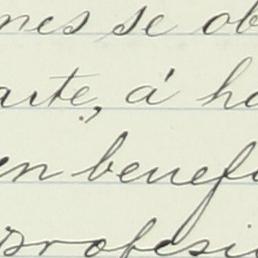 nes se ob
arte, á ha
en benefi
profesi